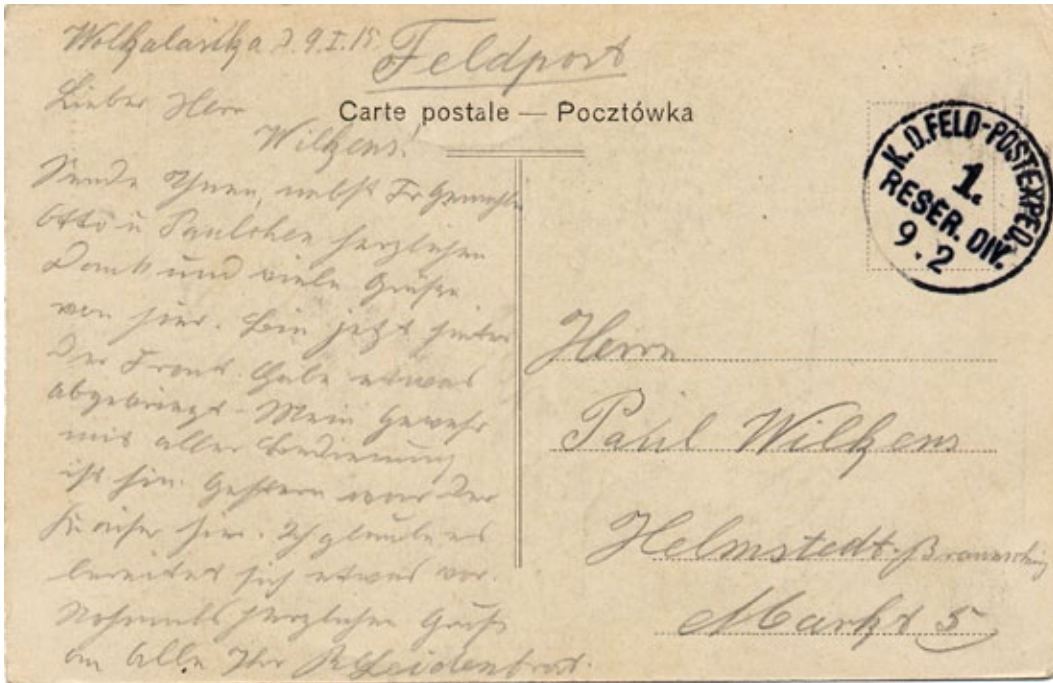 9.I.15
Feldpost
Lieber Herr
Carte postale — Pocztówka
Wilkens!
Sende Ihnen, nebst Fr Gemahlin
Otto u Paulchen herzlichen
Dank und viele Grüße
von hier. Bin jetzt hinter
der Front. Habe etwas
abgekriegt. Mein Gewehr
mit aller Bedienung
ist hin. Gestern war der
Kaiser hier. Ich glaube es
bereitet sich etwas vor.
Nochmals herzlichen Gruß
an Alle Ihr
K. D. FELD-POSTEXPED.
1.
RESER. DIV.
9.2
Herrn
Paul Wilkens
Helmstedt.
Markt 5